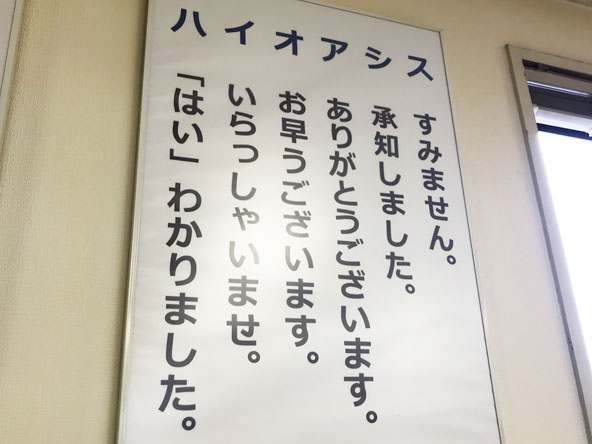 ハイオアシス
すみません。
承知しました。
ありがとうございます。
お早うございます。
いらっしゃいませ。
「はい」わかりました。